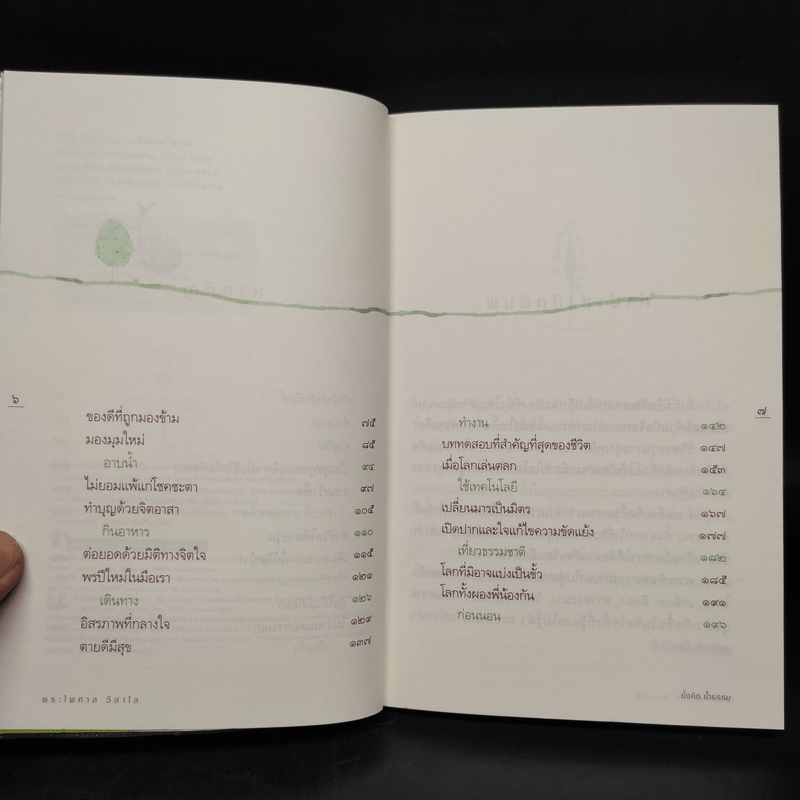 ๖
ของดีที่ถูกมองข้าม ๗๕
มองมุมใหม่ ๘๕
อาบน้ำ ๙๔
ไม่ยอมแพ้แก่โชคชะตา ๙๗
ทำบุญด้วยจิตอาสา ๑๐๕
กินอาหาร ๑๑๐
ต่อยอดด้วยมิติทางจิตใจ ๑๑๕
พรปีใหม่ในมือเรา ๑๒๑
เดินทาง ๑๒๖
อิสรภาพที่กลางใจ ๑๒๙
ตายดีมีสุข ๑๓๗
พระไพศาล วิสาโล
๗
ทำงาน ๑๔๒
บททดสอบที่สำคัญที่สุดของชีวิต ๑๔๗
เมื่อโลกเล่นตลก ๑๕๓
ใช้เทคโนโลยี ๑๖๔
เปลี่ยนมารเป็นมิตร ๑๖๗
เปิดปากและใจแก้ไขความขัดแย้ง ๑๗๗
เที่ยวธรรมชาติ ๑๘๒
โลกที่มิอาจแบ่งเป็นขั้ว ๑๘๕
โลกทั้งผองพี่น้องกัน ๑๙๑
ก่อนนอน ๑๙๖
ยั้งคิด นำธรรม